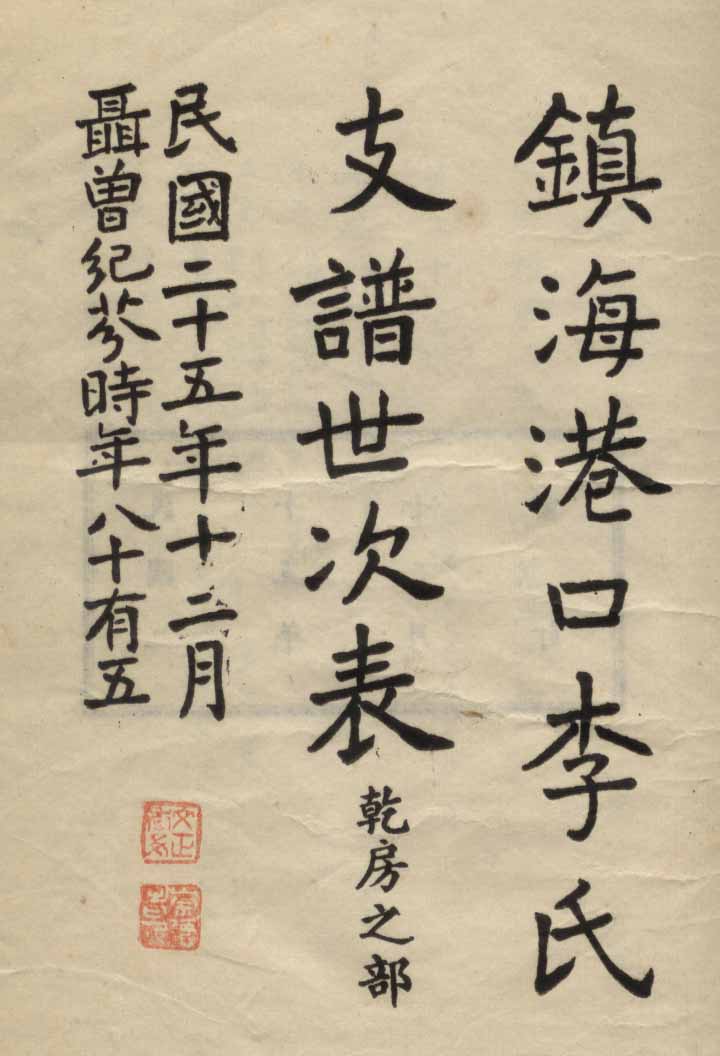 鎮海港口李氏
支譜世次表
乾房之部
民國二十五年十二月
聶曾紀芬時年八十有五